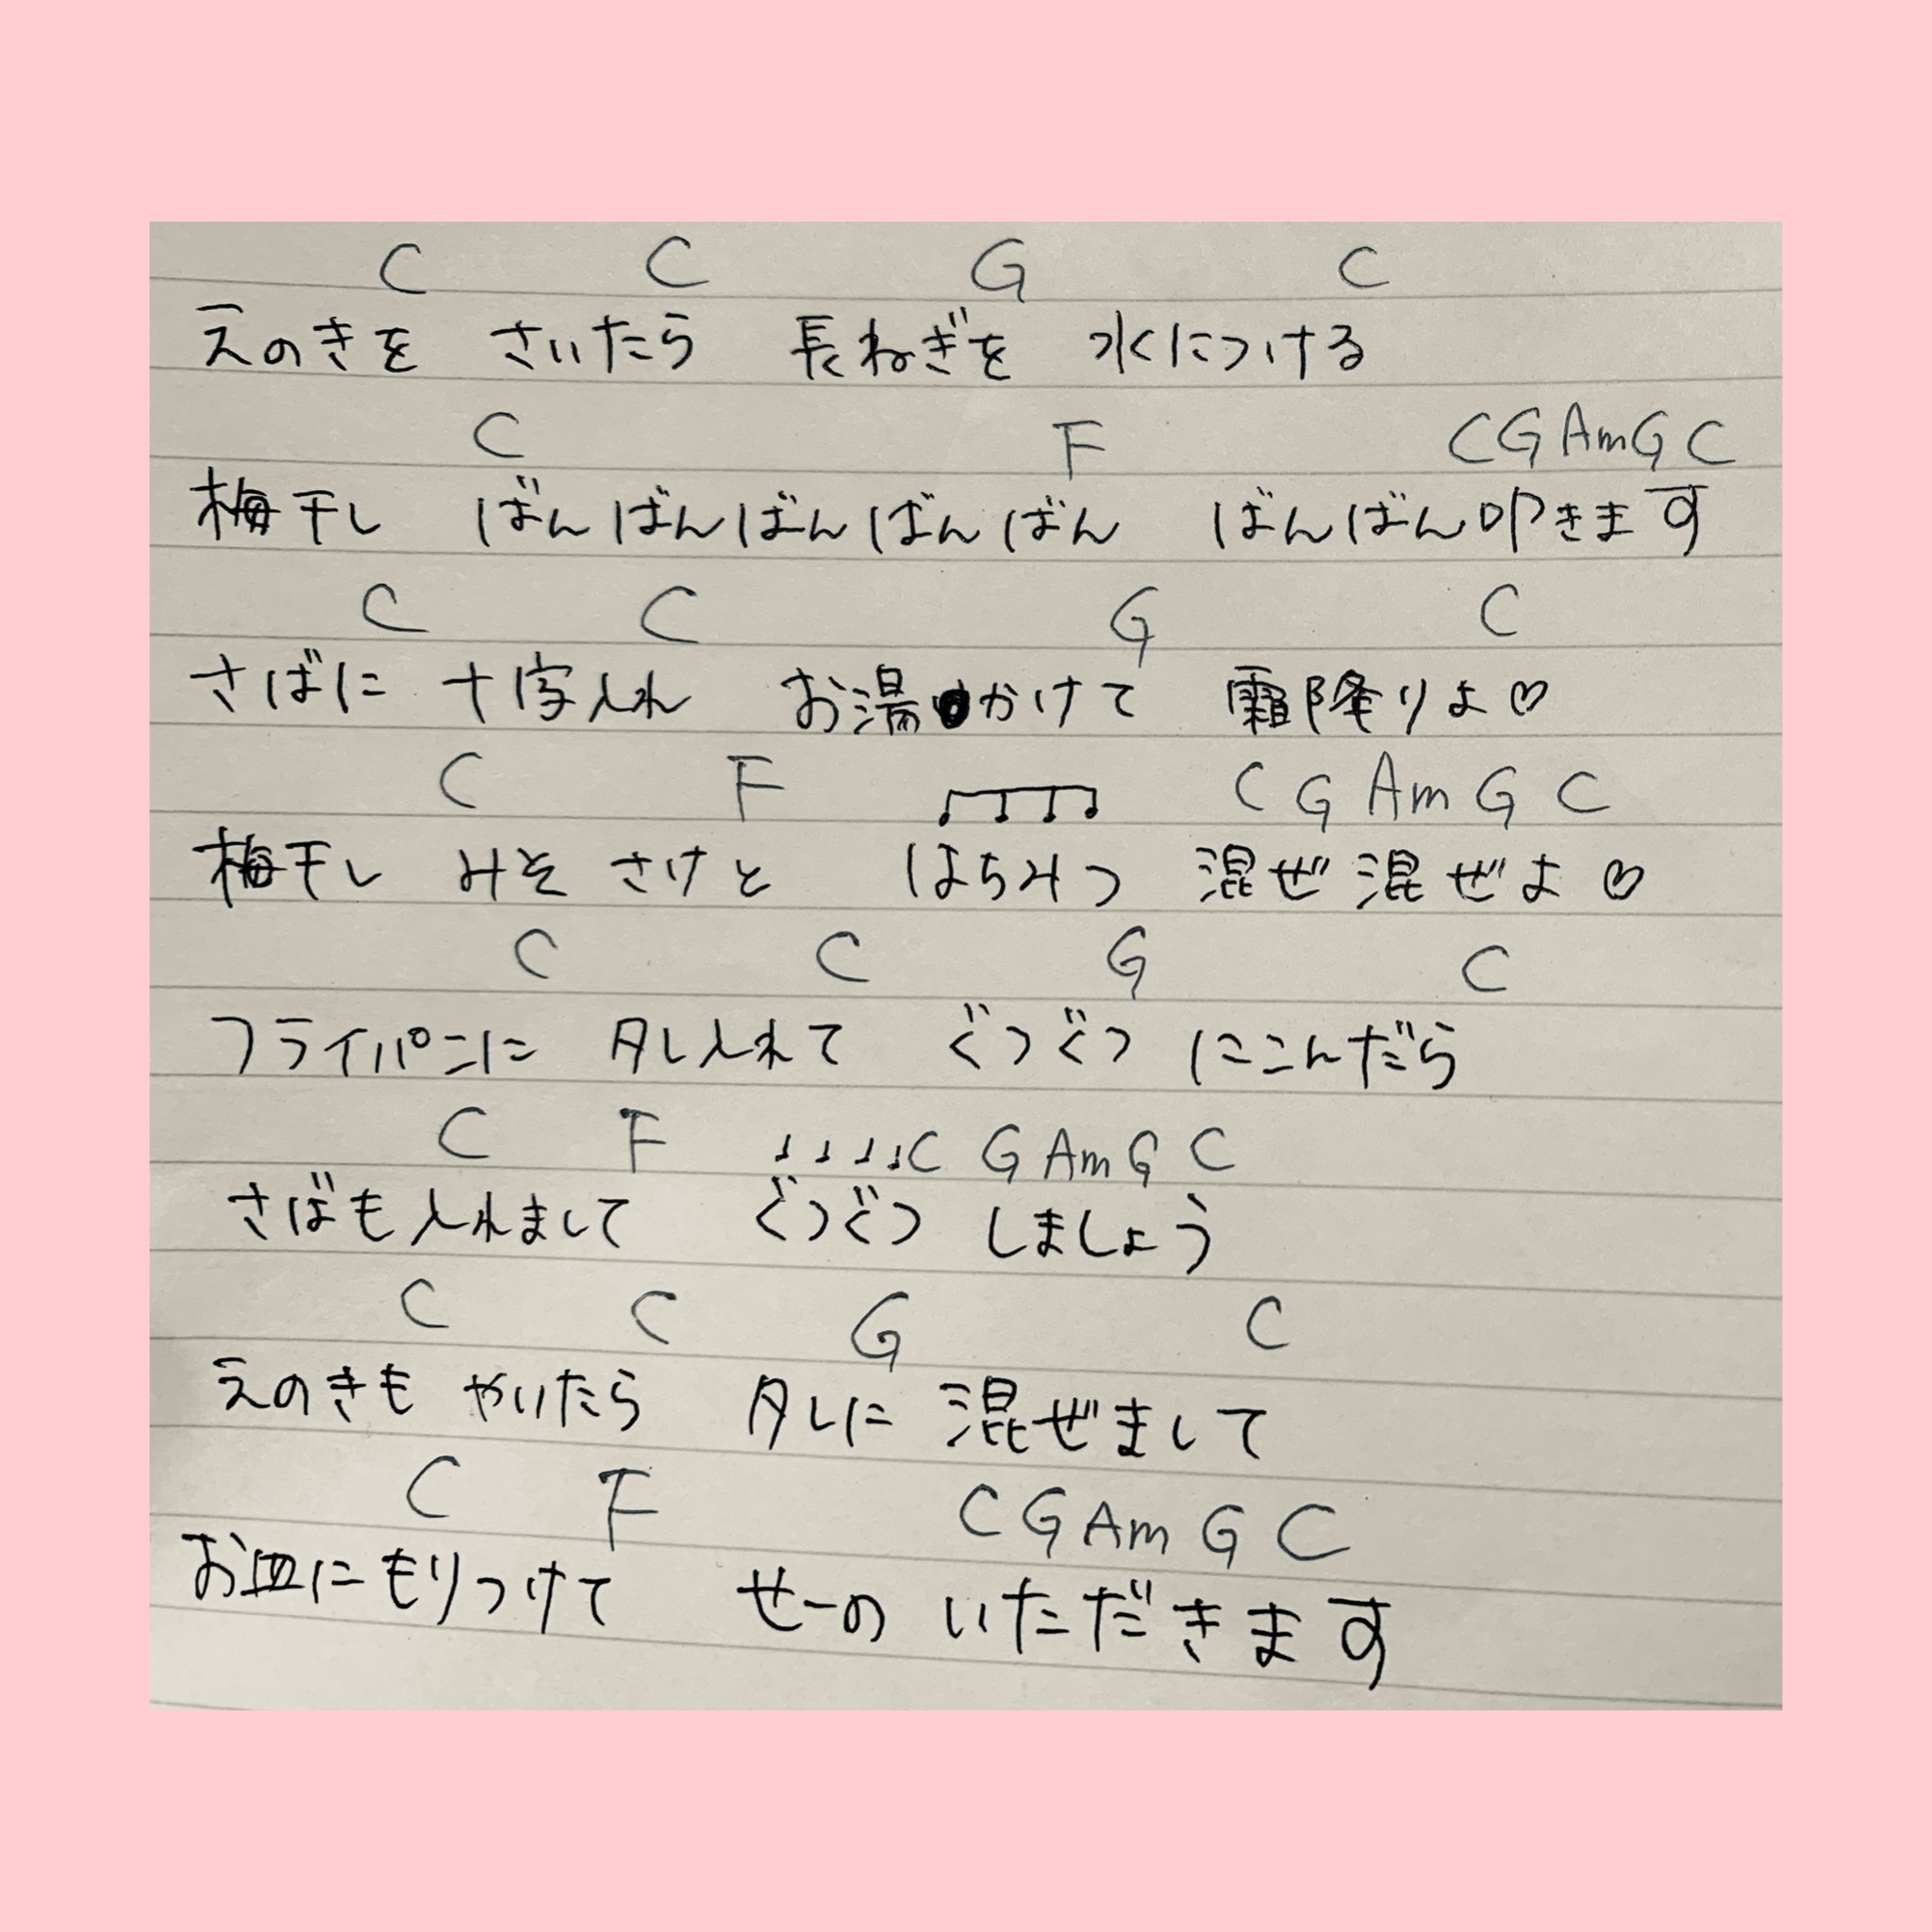 C C G C
えのきを さいたら 長ねぎを 水につける
C F CGAmGC
梅干し ばんばんばんばんばん ばんばん叩きます
C C G C
さばに 十字入れ お湯かけて 霜降りよ♡
C F C G Am G C
梅干し みそ さけと はちみつ 混ぜ混ぜよ♡
C C G C
フライパンに タレ入れて ぐつぐつ にこんだら
C F ♩♩♩♩C G Am G C
さばも入れまして ぐつぐつ しましょう
C C G C
えのきも やいたら タレに 混ぜまして
C F C G Am G C
お皿にもりつけて せーの いただきます